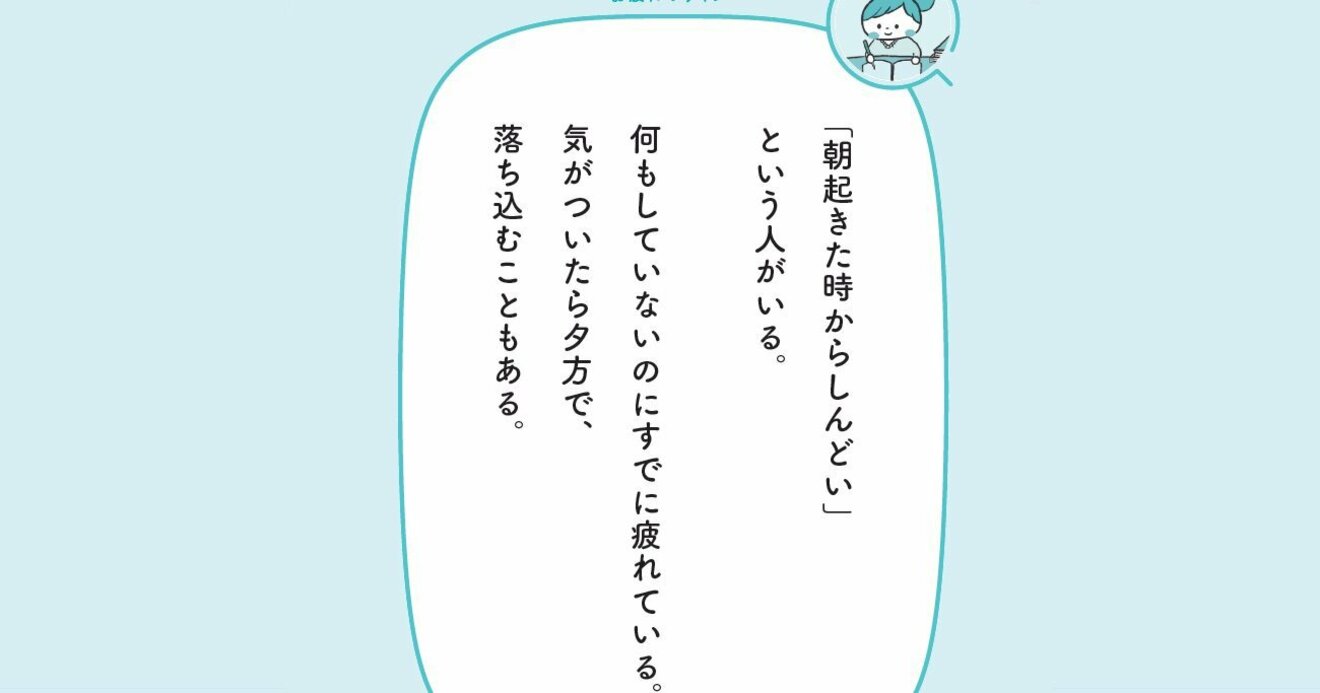 「朝起きた時からしんどい」
という人がいる。
何もしていないのにすでに疲れている。
気がついたら夕方で、
落ち込むこともある。